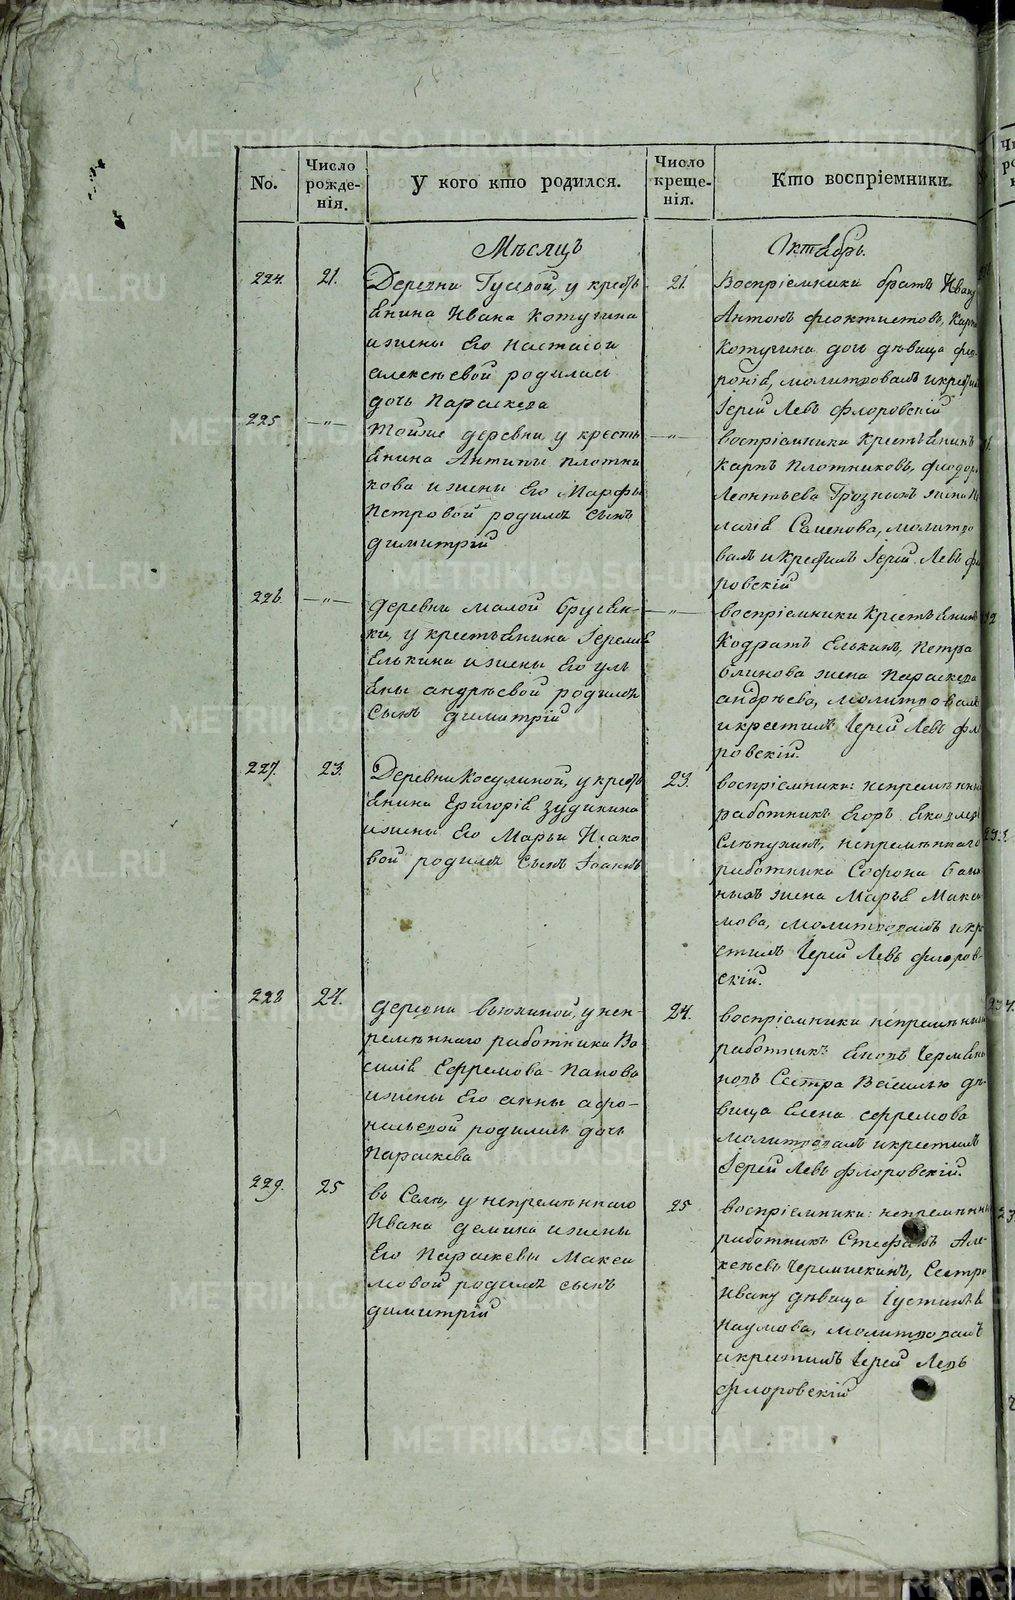 No.
Число рожде-нія.
У кого кто родился.
Число креще-нія.
Кто воспріемники.
Мѣсяцъ
Октябрь.
224.
21.
Деревни Гусевой, у кресть
янина Ивана Котугина
и жены его Настасьи
алексѣевой родилась
дочь Параскева
21.
Воспріемники братъ Ивану
Антонъ феоктистовъ, Карпа
Котугина дочь дѣвица фев
ронія, молитвовалъ и крестилъ
Іерей Левъ флоровскій
225.
—„—
Тойже деревни, у кресть
янина Антипы плотни
кова и жены его Марфы
Петровой родился сынъ
димитрій
—„—
воспріемники крестьянинъ
карпъ Плотниковъ, феодора
Леонтьева Грозныхъ жена
Семенова, молитво
валъ и крестилъ Іерей Левъ фло
ровскій
226.
—„—
деревни малой брусян-
ки, у крестьянина Іеремея
Елькина и жены его уль
яны андрѣевой родился
сынъ димитрій
—„—
воспріемники крестьянинъ
Кодратъ Елькинъ, петра
блинова жена Параскева
андрѣева, молитвовалъ
и крестилъ Іерей Левъ фло
ровскій.
227.
23.
Деревни Косулиной, у кресть
янина Григорія Зудихина
и жены его Марьи Исако
вой родился сынъ Іоаннъ
23.
воспріемники: непремѣнный
работникъ Егоръ
Слѣпухинъ, непремѣннаго
работника Софона
ныхъ жена Марья Макси
мова, молитвовалъ и кре
стилъ Іерей Левъ флоров-
скій.
228
24.
деревни вьюхиной, у неп-
ремѣннаго работника Ва
силія Ефремова Панова
и жены его анны афо-
насьевой родилась дочь
Параскева
24.
воспріемники непремѣнный
работникъ
новъ Сестра Василью дѣ-
вица Елена ефремова
молитвовалъ и крестилъ
Іерей Левъ флоровскій.
229.
25
въ Селѣ, у непремѣннаго
Ивана демина и жены
Его Параскевы Макси
мовой родился сынъ
димитрій
25
воспріемники: непремѣнный
работникъ Стефанъ Але-
ксѣевъ Черемискинъ, Сестра
Ивану дѣвица Іустинья
Наумова, молитвовалъ
и крестилъ Іерей Левъ
флоровскій
METRIKI.GASO-URAL.RU